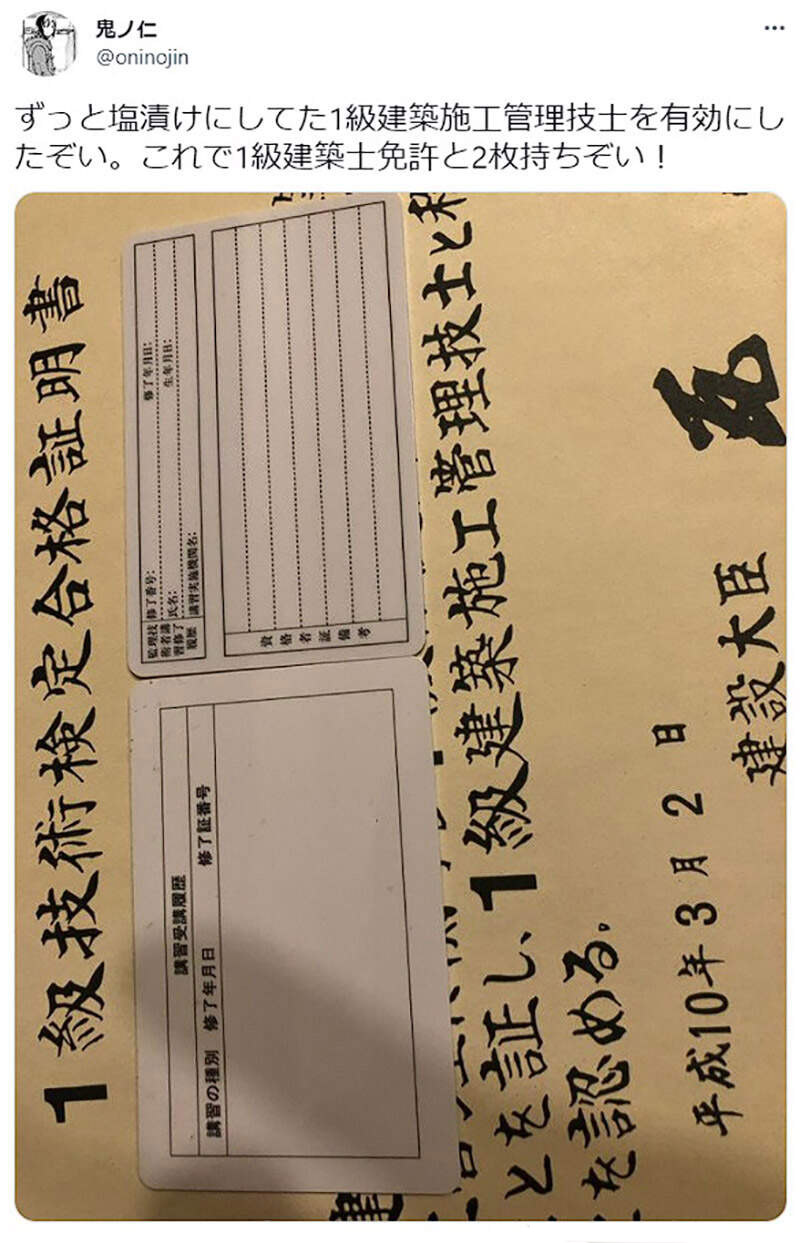 鬼ノ仁
@oninojin
ずっと塩漬けにしてた1級建築施工管理技士を有効にし
たぞい。これで1級建築士免許と2枚持ちぞい！
1級技術検定合格証明書
監理技術者講習修了履歴
修了番号:
修了年月日:
氏名:
生年月日:
講習実施機関名:
資格者証備考
講習受講履歴
講習の種別 修了年月日 修了証番号
とを証し、1級建築施工管理技士と称
を認める。
平成10年3月2日
建設大臣